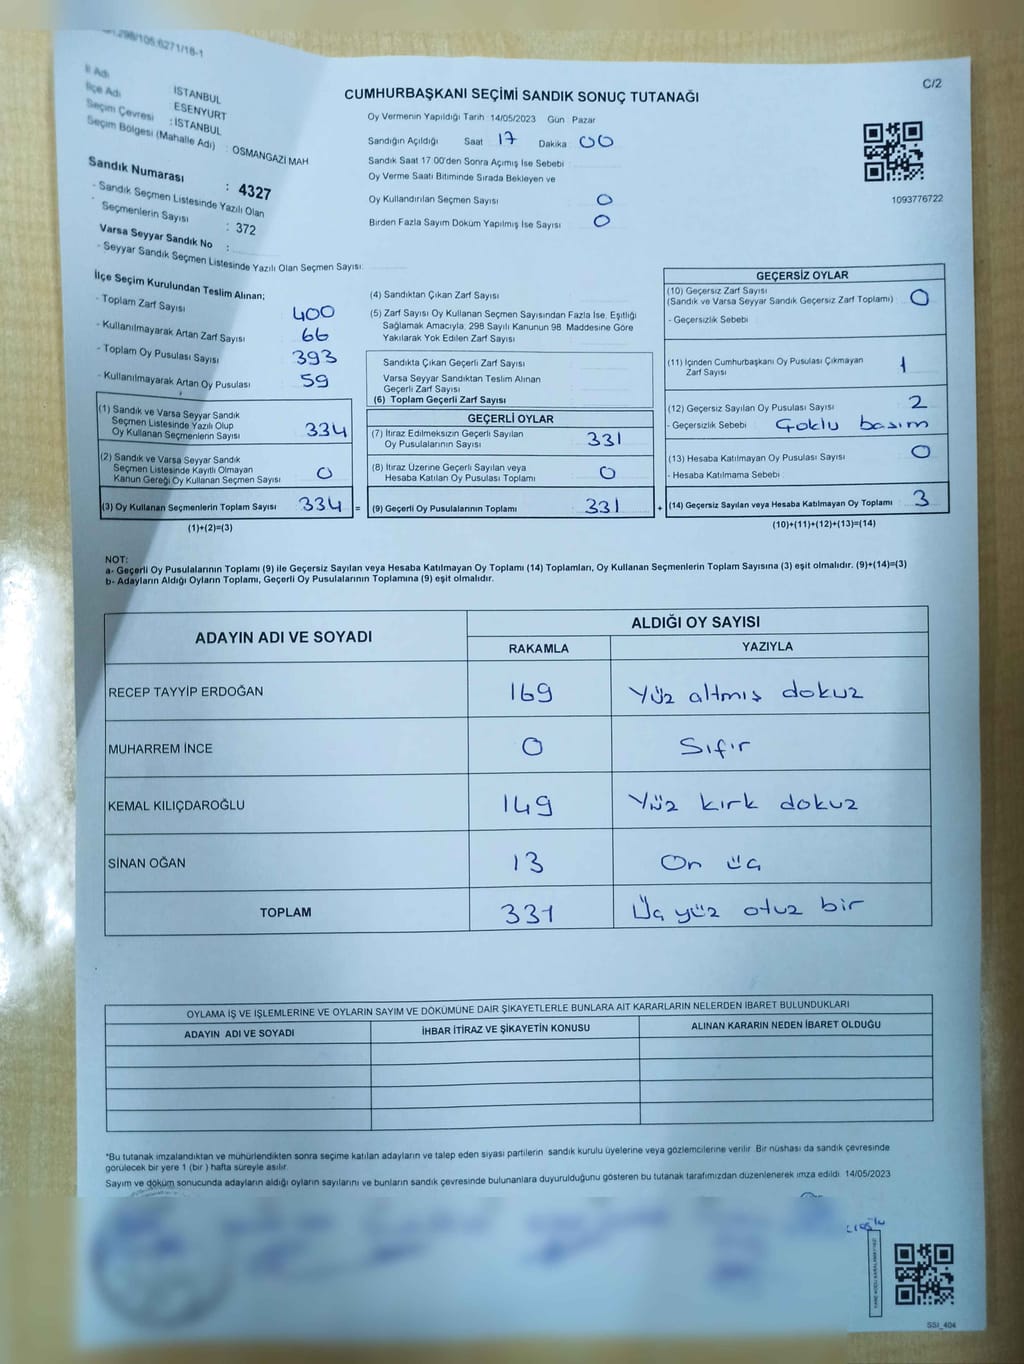 298/105.6271/18-1
C/2
İl Adı : İSTANBUL
İlçe Adı : ESENYURT
Seçim Çevresi : İSTANBUL
Seçim Bölgesi (Mahalle Adı) : OSMANGAZİ MAH
Sandık Numarası : 4327
- Sandık Seçmen Listesinde Yazılı Olan
Seçmenlerin Sayısı : 372
Varsa Seyyar Sandık No :
- Seyyar Sandık Seçmen Listesinde Yazılı Olan Seçmen Sayısı:
CUMHURBAŞKANI SEÇİMİ SANDIK SONUÇ TUTANAĞI
Oy Vermenin Yapıldığı Tarih 14/05/2023 Gün : Pazar
Sandığın Açıldığı Saat 17 Dakika 00
Sandık Saat 17 00'den Sonra Açımış İse Sebebi
Oy Verme Saati Bitiminde Sırada Bekleyen ve
Oy Kullandırılan Seçmen Sayısı 0
Birden Fazla Sayım Döküm Yapılmış İse Sayısı 0
1093776722
İlçe Seçim Kurulundan Teslim Alınan;
- Toplam Zarf Sayısı 400
- Kullanılmayarak Artan Zarf Sayısı 66
- Toplam Oy Pusulası Sayısı 393
- Kullanılmayarak Artan Oy Pusulası 59
(1) Sandık ve Varsa Seyyar Sandık
Seçmen Listesinde Yazılı Olup
Oy Kullanan Seçmenlerin Sayısı 334
(2) Sandık ve Varsa Seyyar Sandık
Seçmen Listesinde Kayıtlı Olmayan
Kanun Gereği Oy Kullanan Seçmen Sayısı 0
(3) Oy Kullanan Seçmenlerin Toplam Sayısı 334 =
(1)+(2)=(3)
(4) Sandıktan Çıkan Zarf Sayısı
(5) Zarf Sayısı Oy Kullanan Seçmen Sayısından Fazla İse, Eşitliği
Sağlamak Amacıyla, 298 Sayılı Kanunun 98. Maddesine Göre
Yakılarak Yok Edilen Zarf Sayısı
Sandıkta Çıkan Geçerli Zarf Sayısı
Varsa Seyyar Sandıktan Teslim Alınan
Geçerli Zarf Sayısı
(6) Toplam Geçerli Zarf Sayısı
GEÇERLİ OYLAR
(7) İtiraz Edilmeksizin Geçerli Sayılan
Oy Pusulalarının Sayısı 331
(8) İtiraz Üzerine Geçerli Sayılan veya
Hesaba Katılan Oy Pusulası Toplamı 0
(9) Geçerli Oy Pusulalarının Toplamı 331 +
GEÇERSİZ OYLAR
(10) Geçersiz Zarf Sayısı
(Sandık ve Varsa Seyyar Sandık Geçersiz Zarf Toplamı) 0
- Geçersizlik Sebebi
(11) İçinden Cumhurbaşkanı Oy Pusulası Çıkmayan
Zarf Sayısı 1
(12) Geçersiz Sayılan Oy Pusulası Sayısı 2
- Geçersizlik Sebebi Çoklu basım
(13) Hesaba Katılmayan Oy Pusulası Sayısı 0
- Hesaba Katılmama Sebebi
(14) Geçersiz Sayılan veya Hesaba Katılmayan Oy Toplamı 3
(10)+(11)+(12)+(13)=(14)
NOT:
a- Geçerli Oy Pusulalarının Toplamı (9) ile Geçersiz Sayılan veya Hesaba Katılmayan Oy Toplamı (14) Toplamları, Oy Kullanan Seçmenlerin Toplam Sayısına (3) eşit olmalıdır. (9)+(14)=(3)
b- Adayların Aldığı Oyların Toplamı, Geçerli Oy Pusulalarının Toplamına (9) eşit olmalıdır.
ADAYIN ADI VE SOYADI ALDIĞI OY SAYISI
RAKAMLA YAZIYLA
RECEP TAYYİP ERDOĞAN 169 Yüz altmış dokuz
MUHARREM İNCE 0 Sıfır
KEMAL KILIÇDAROĞLU 149 Yüz kırk dokuz
SİNAN OĞAN 13 On üç
TOPLAM 331 Üç yüz otuz bir
OYLAMA İŞ VE İŞLEMLERİNE VE OYLARIN SAYIM VE DÖKÜMÜNE DAİR ŞİKAYETLERLE BUNLARA AİT KARARLARIN NELERDEN İBARET BULUNDUKLARI
ADAYIN ADI VE SOYADI İHBAR İTİRAZ VE ŞİKAYETİN KONUSU ALINAN KARARIN NEDEN İBARET OLDUĞU
*Bu tutanak imzalandıktan ve mühürlendikten sonra seçime katılan adayların ve talep eden siyasi partilerin sandık kurulu üyelerine veya gözlemcilerine verilir. Bir nüshası da sandık çevresinde
görülecek bir yere 1 (bir) hafta süreyle asılır.
Sayım ve döküm sonucunda adayların aldığı oyların sayılarını ve bunların sandık çevresinde bulunanlara duyurulduğunu gösteren bu tutanak tarafımızdan düzenlenerek imza edildi. 14/05/2023
SSI_404